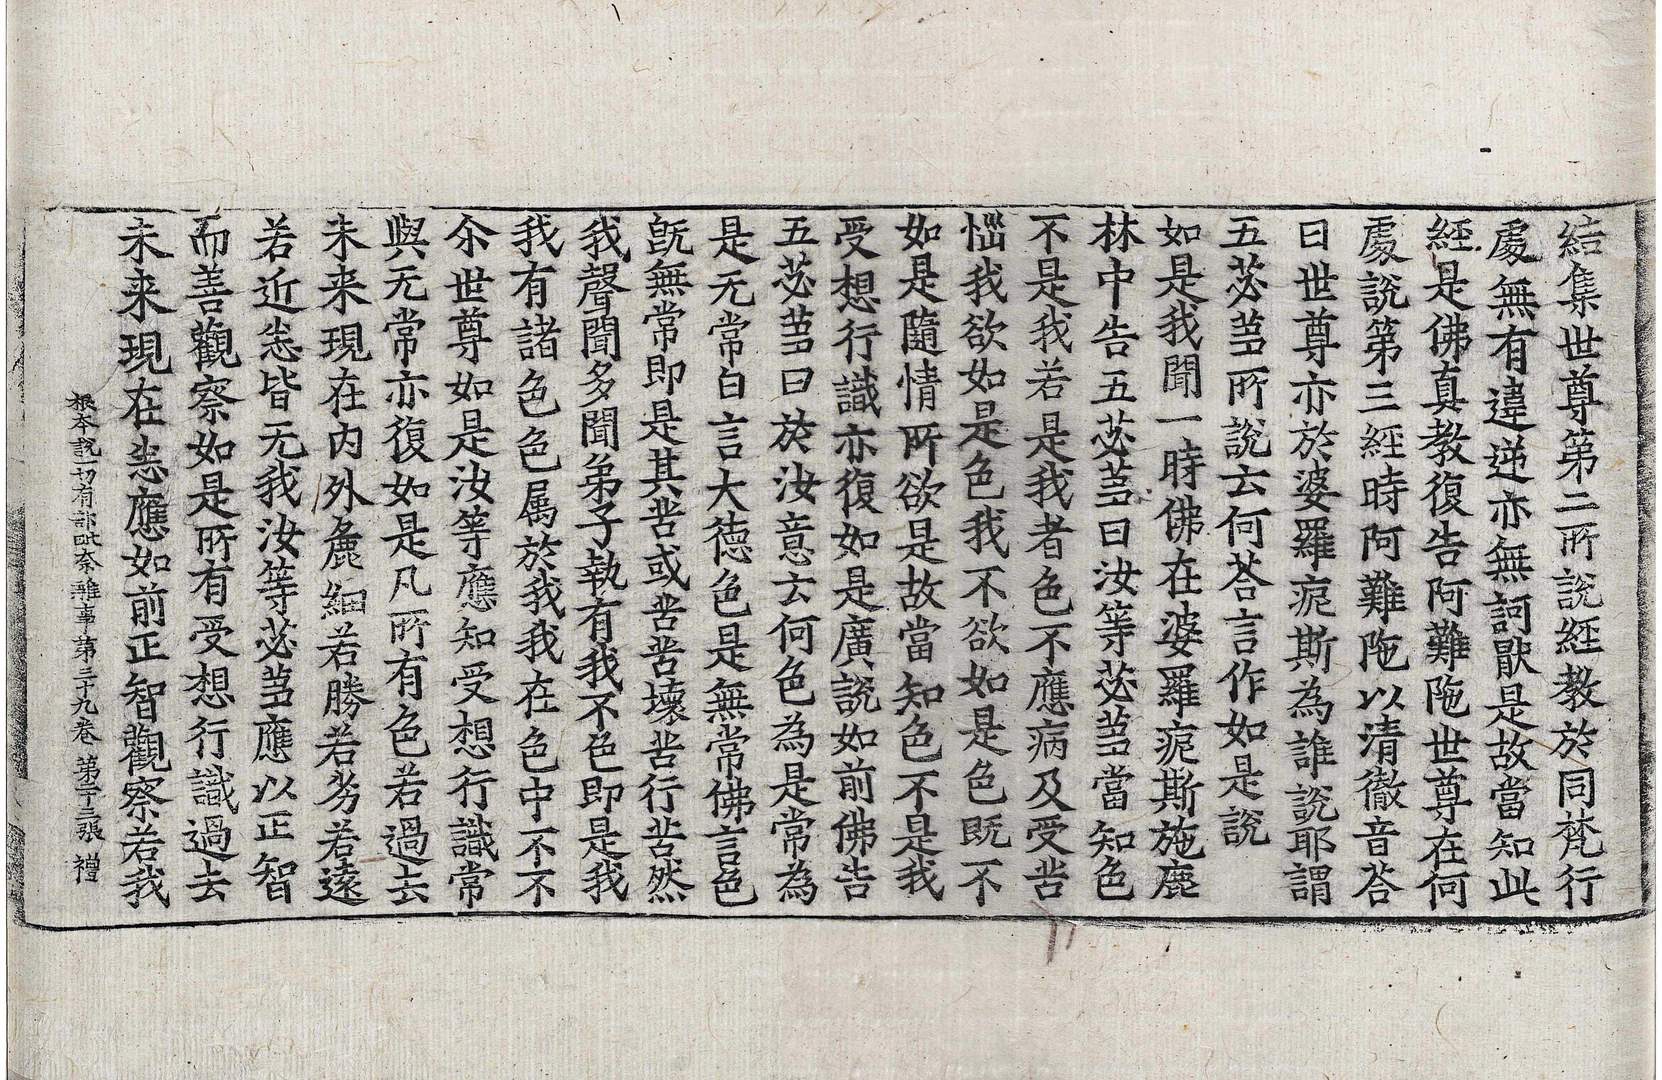 結集世尊第二所說經教於同梵行
處無有違逆亦無訶厭是故當知此
經是佛真教復告阿難陁世尊在何
處說第三經時阿難陁以清徹音荅
曰世尊亦於婆羅痆斯為誰說耶謂
五苾芻所說云何荅言作如是說
如是我聞一時佛在婆羅痆斯施鹿
林中告五苾芻曰汝等苾芻當知色
不是我若是我者色不應病及受苦
惱我欲如是色我不欲如是色既不
如是隨情所欲是故當知色不是我
受想行識亦復如是廣說如前佛告
五苾芻曰於汝意云何色為是常為
是无常白言大德色是無常佛言色
既無常即是其苦或苦苦壞苦行苦然
我聲聞多聞弟子執有我不色即是我
我有諸色色属於我我在色中不不
尒世尊如是汝等應知受想行識常
與无常亦復如是凡所有色若過去
未来現在内外麁細若勝若劣若遠
若近悉皆无我汝等苾芻應以正智
而善觀察如是所有受想行識過去
未来現在悉應如前正智觀察若我
根本說一切有部毗奈雜事第三十九卷 第二十三張 禮